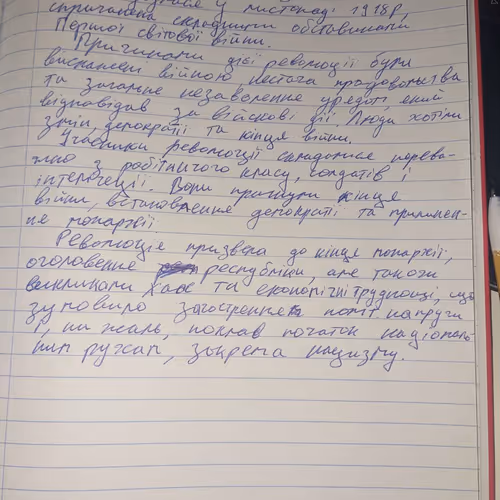 у листопаді 1918р,
спричинена складними обставинами
Першої світової війни.
Причинами цієї революції були
виснажені війною, нестача продовольства
та загальне незаволенне уряду, який
відповідав за військові дії. Люди хотіли
змін, демократії та кінця війни.
Учасники революції складалися перева-
жно з робітничого класу, солдатів і
інтелігеції. Вони прагнули кінце
війни, встановлення демократії та припинен-
не монархії
Революціє призвела до кінце монархії,
оголовенне республіки, але також
викликали хаос та економічні труднощі, що
зумовило загостренне політ напруги
і, ни жаль, поклав початок націонал
ним рухам, зокрема нацизму.